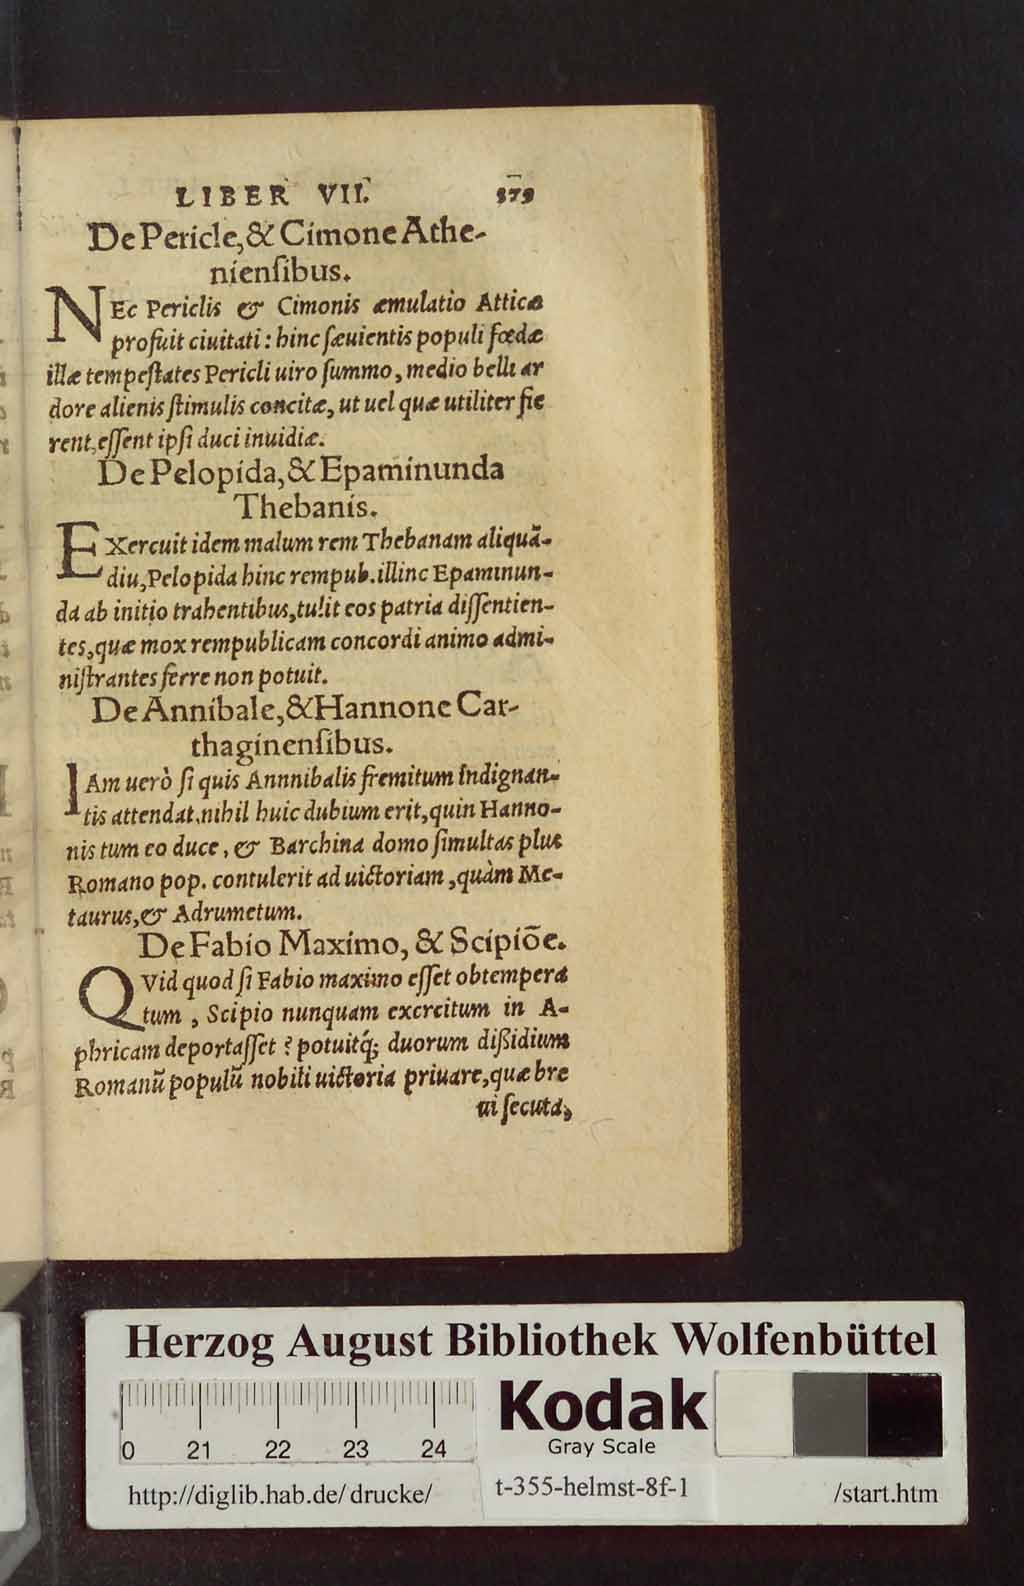 LIBER VII. 379
De Pericle, & Cimone Athe-
nienſibus.
NEc Periclis & Cimonis æmulatio Atticæ
profuit ciuitati : hinc ſæuientis populi fœdæ
illæ tempeſtates Pericli uiro ſummo, medio belli ar
dore alienis ſtimulis concitæ, ut uel quæ utiliter fie
rent, eſſent ipſi duci inuidiæ.
De Pelopida, & Epaminunda
Thebanis.
EXercuit idem malum rem Thebanam aliquā-
diu, Pelopida hinc rempub. illinc Epaminun-
da ab initio trahentibus, tulit eos patria diſſentien-
tes, quæ mox rempublicam concordi animo admi-
niſtrantes ferre non potuit.
De Annibale, & Hannone Car-
thaginenſibus.
IAm uerò ſi quis Annnibalis fremitum indignan-
tis attendat, nihil huic dubium erit, quin Hanno-
nis tum eo duce, & Barchina domo ſimultas plus
Romano pop. contulerit ad uictoriam, quàm Me-
taurus, & Adrumetum.
De Fabio Maximo, & Scipiōe.
QVid quod ſi Fabio maximo eſſet obtempera
tum, Scipio nunquam exercitum in A-
phricam deportaſſet ? potuitq́; duorum dißidium
Romanū populū nobili uictoria priuare, quæ bre
ui ſecuta,
Herzog August Bibliothek Wolfenbüttel
0 21 22 23 24
Kodak
Gray Scale
http://diglib.hab.de/drucke/ t-355-helmst-8f-1 /start.htm